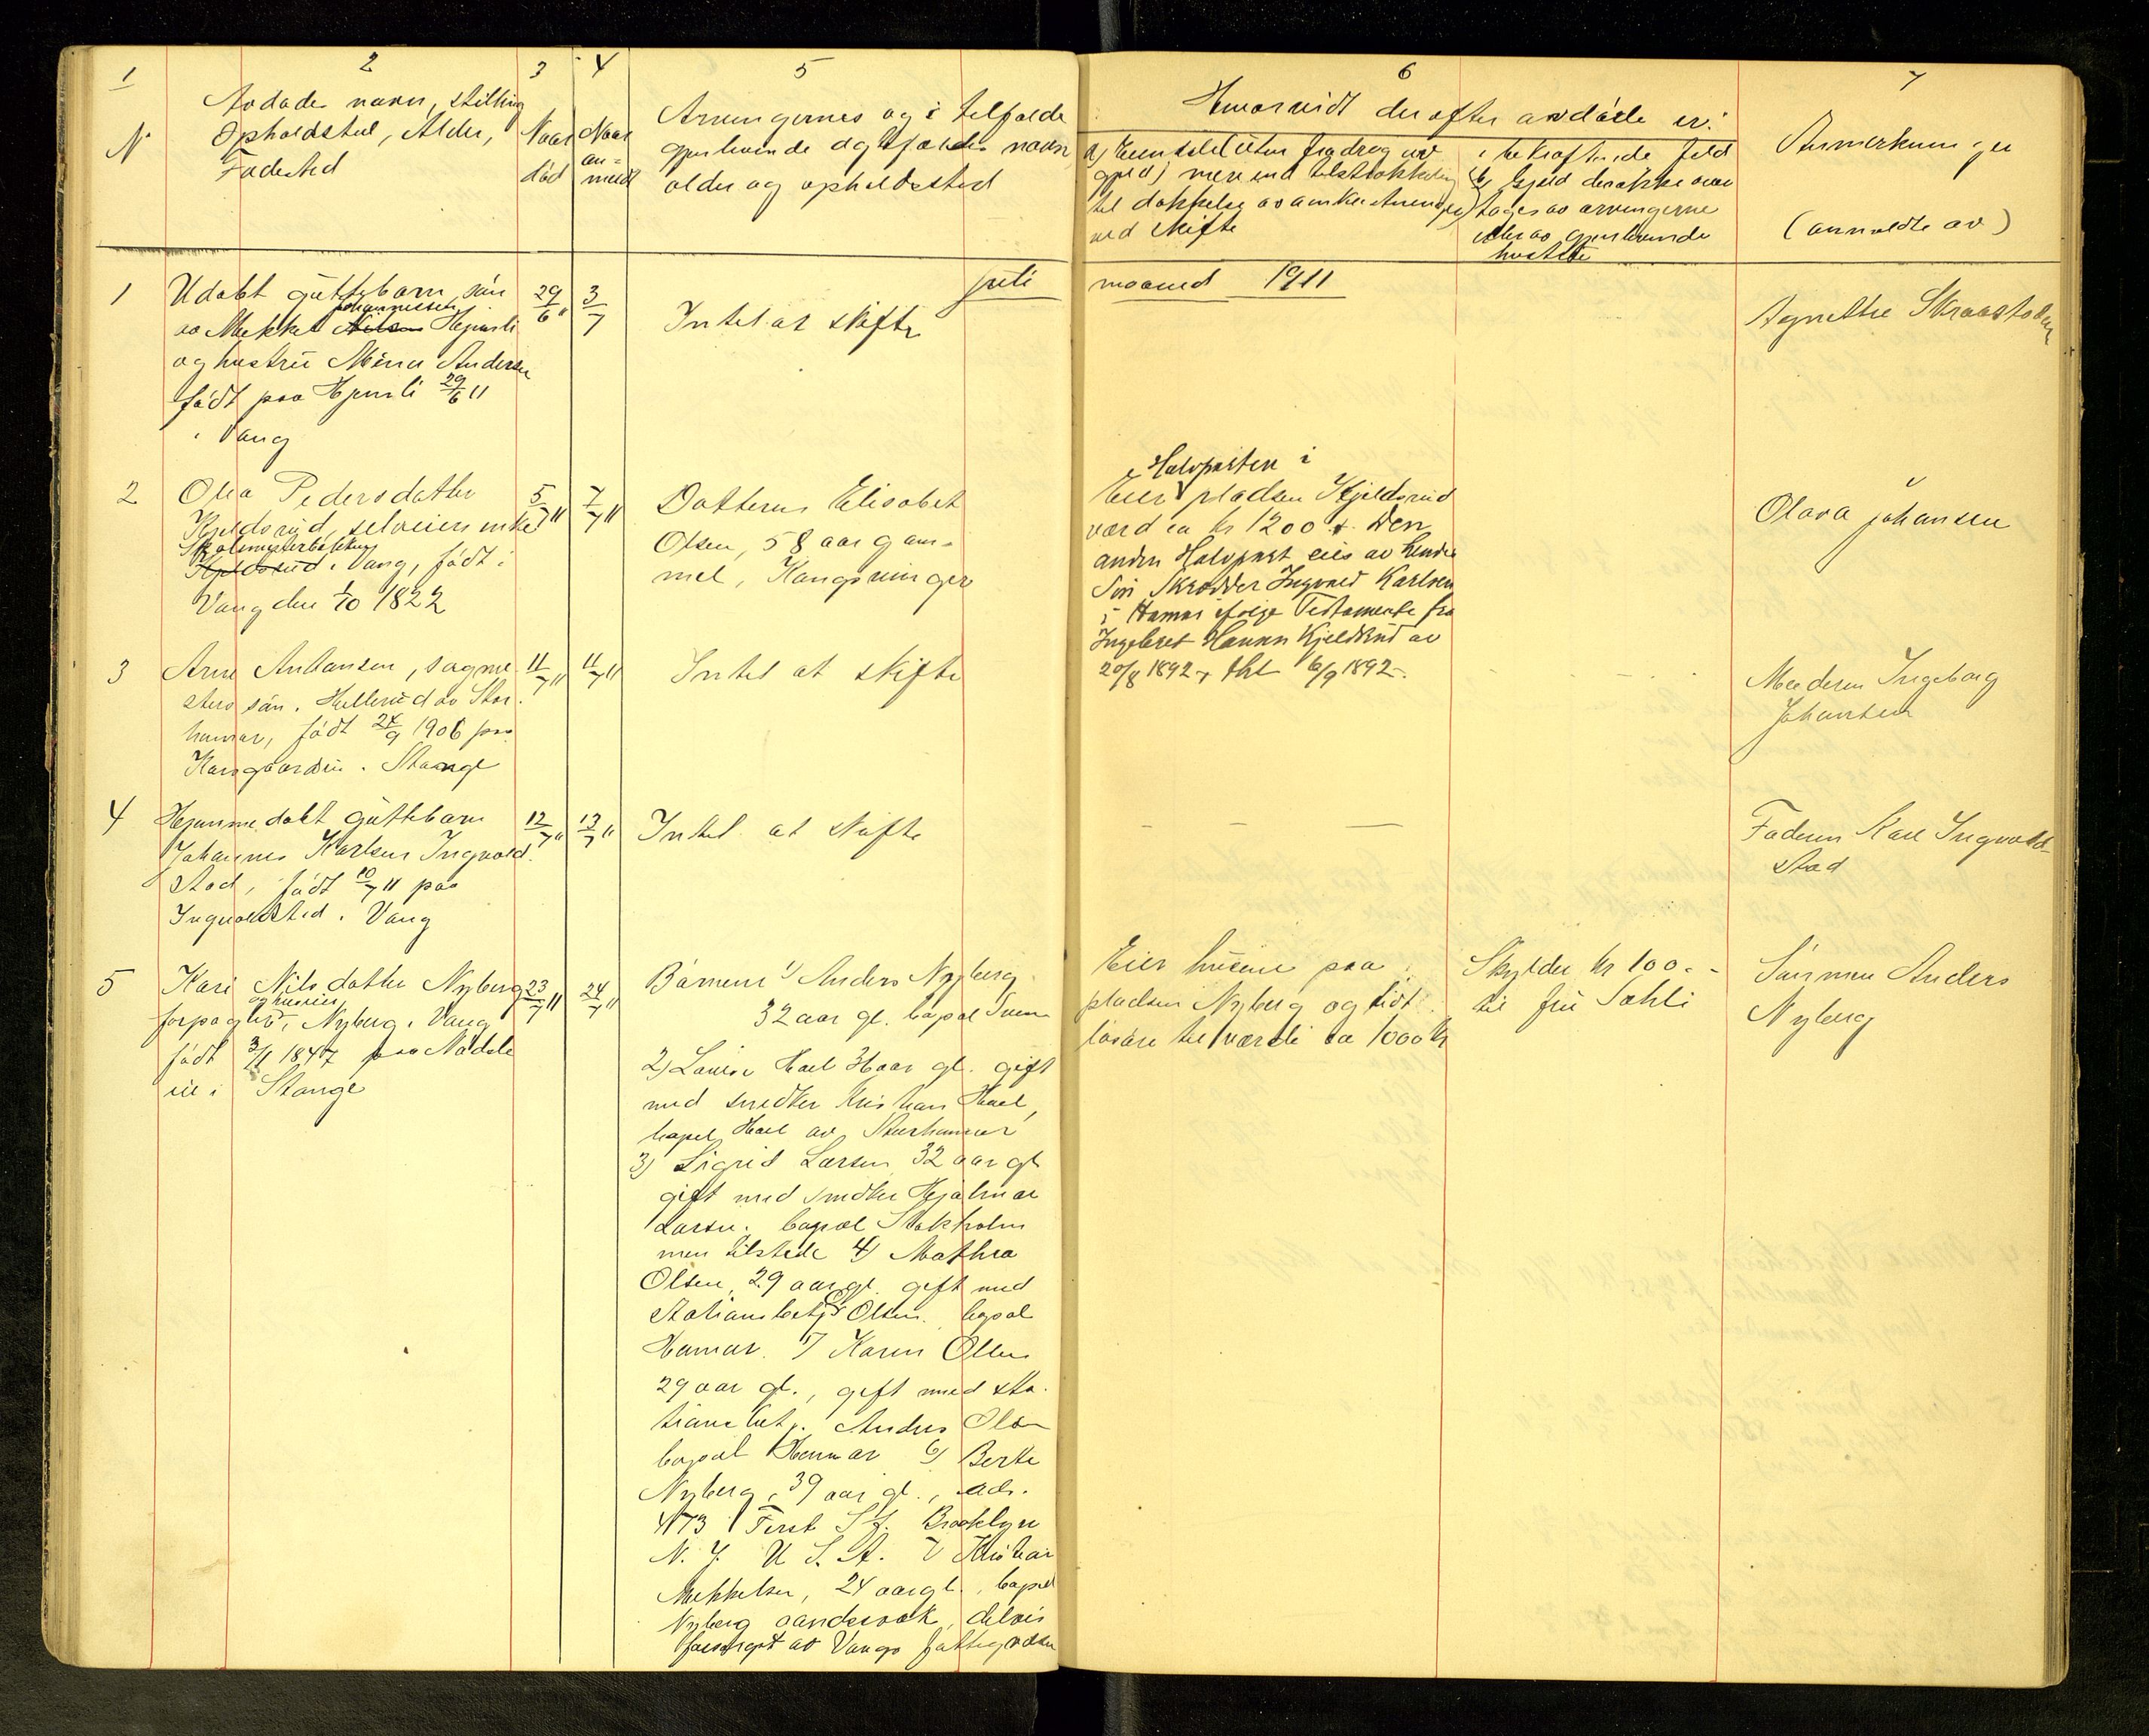 1
2
3
4
5
6
7
N
Avdødes navn, stilling
Opholdsted, Alder,
Fødested
Naar
død
Naar
an=
meldt
Arvingernes og i tilfælde
gjenlevende ægtefælles navn
alder og opholdssted
Hvorvidt der efter avdøde er:
a) Eiendele (uten fradrag av
gjæld) mere end tilstrækkelig
til dækkelse av omkostningen
ved skifte
i bekræftende fald
b) Gjæld der ikke over
tages av arvingerne
eller av gjenlevende
hustru
Anmerkninger
(anmeldte av)
juli
maaned 1911
1
Udøbt guttebarn, søn
Johannessen
av Mekkel Nilsen Hjemli
og hustru Mina Andersen
født paa Hjemli 29/6 11
i Vang
29/6 11
3/7
Intet at skifte
Agnethe Skraastaden
2
Olea Pedersdatter
Kjeldsrud, selveierenke
Skolemesterbakken
Kjeldsrud i Vang, født i
Vang den 1/10 1822
5/7 11
7/7 11
Datteren Elisabet
Olsen, 58 aar gam=
mel, Kongsvinger
Halvparten i
Eier pladsen Kjeldsrud
værd ca kr 1200.- Den
anden Halvpart eies av hendes
Søn Skrædder Ingvald Karlsen
i Hamar ifølge Testamente fra
Ingeboret Hansen Kjeldsrud av
20/8 1892, thl 6/9 1892.
Olava Johansen
3
Arne Antonsen, sagme
sters søn. Hellerud av Stor
hamar, født 24/9 1906 paa
Korsgaarden i Stange
11/7 11
11/7 11
Intet at skifte
Moderen Ingeborg
Johansen
4
Hjemmedøbt guttebarn
Johannes Karlsen Ingvold
stad, født 10/7 11 paa
Ingvoldstad i Vang
12/7 11
13/7 11
Intet at skifte
Faderen Karl Ingvold
stad
5
Kari Nilsdatter Nyberg
og huseier
forpagter, Nyberg i Vang
født 3/1 1847 paa Nødsle
ie i Stange
23/7 11
24/7 11
Børnene 1) Anders Nyberg
32 aar gl. bopæl
2) Louise Hoel aar gl. gift
med snedker Kristian Hoel,
bopæl Hoel av Storhamar
3) Sigrid Larsen 32 aar gl
gift med snedker Hjalmar
Larsen. bopæl Stokholm
men tilstede 4) Mathea
Olsen, 29 aar gl. gift med
Stationsbetj. Olsen. bopæl
Hamar. 5) Karen Olsen
29 aar gl., gift med sta.
tionsbetj. Anders Olsen
bopæl Hamar 6) Berte
Nyberg, 39 aar gl., adr.
473 First St. Brooklyn
N. Y. U. S. A. 7 Kristian
Mekkelsen, 24 aar gl., bopæl
Nyberg aandssvak, delvis
forsørget av Vangs fattigvæsen
Eier husene paa
pladsen Nyberg og lidt
løsøre til værdi ca 1000 kr
Skylder kr 100.-
til fru Sahli
Sønnen Anders
Nyberg